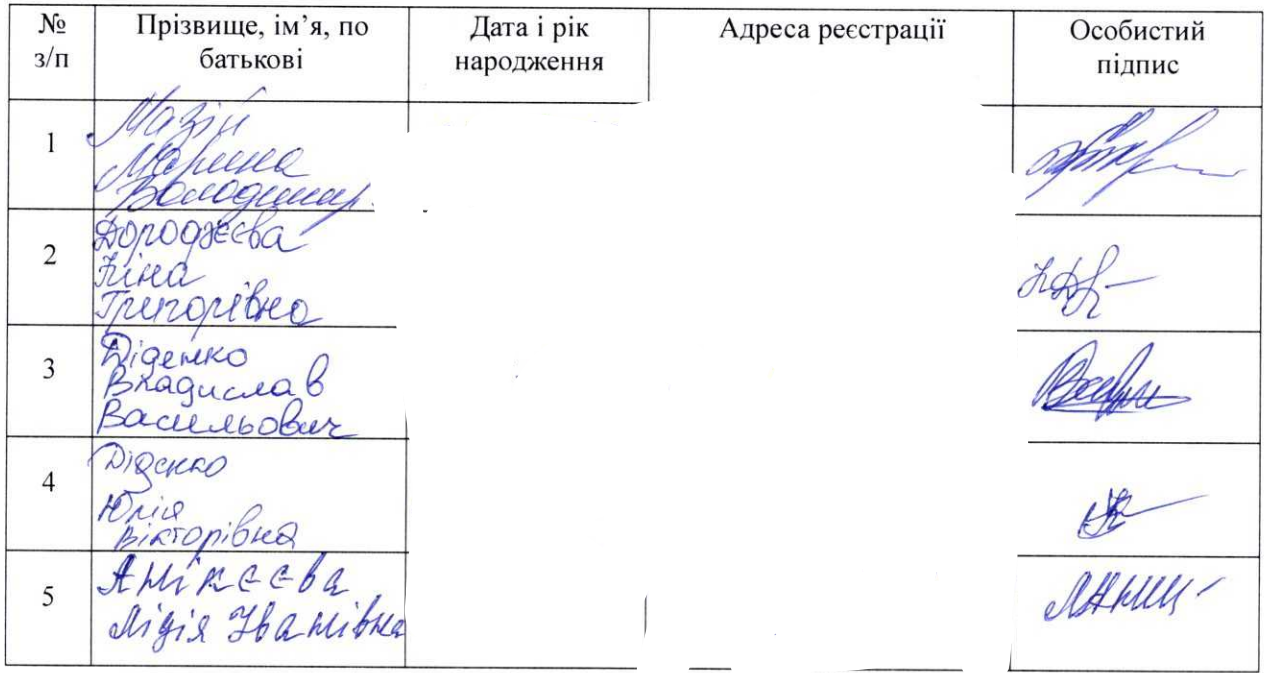 № з/п
Прізвище, ім’я, по батькові
Дата і рік народження
Адреса реєстрації
Особистий підпис
1
Мазій
Марина
Володимир.
2
Дороджєєва
Ніна
Григорівна
3
Діденко
Владислав
Васильович
4
Діденко
Юлія
Вікторівна
5
Анікєєва
Лідія Іванівна